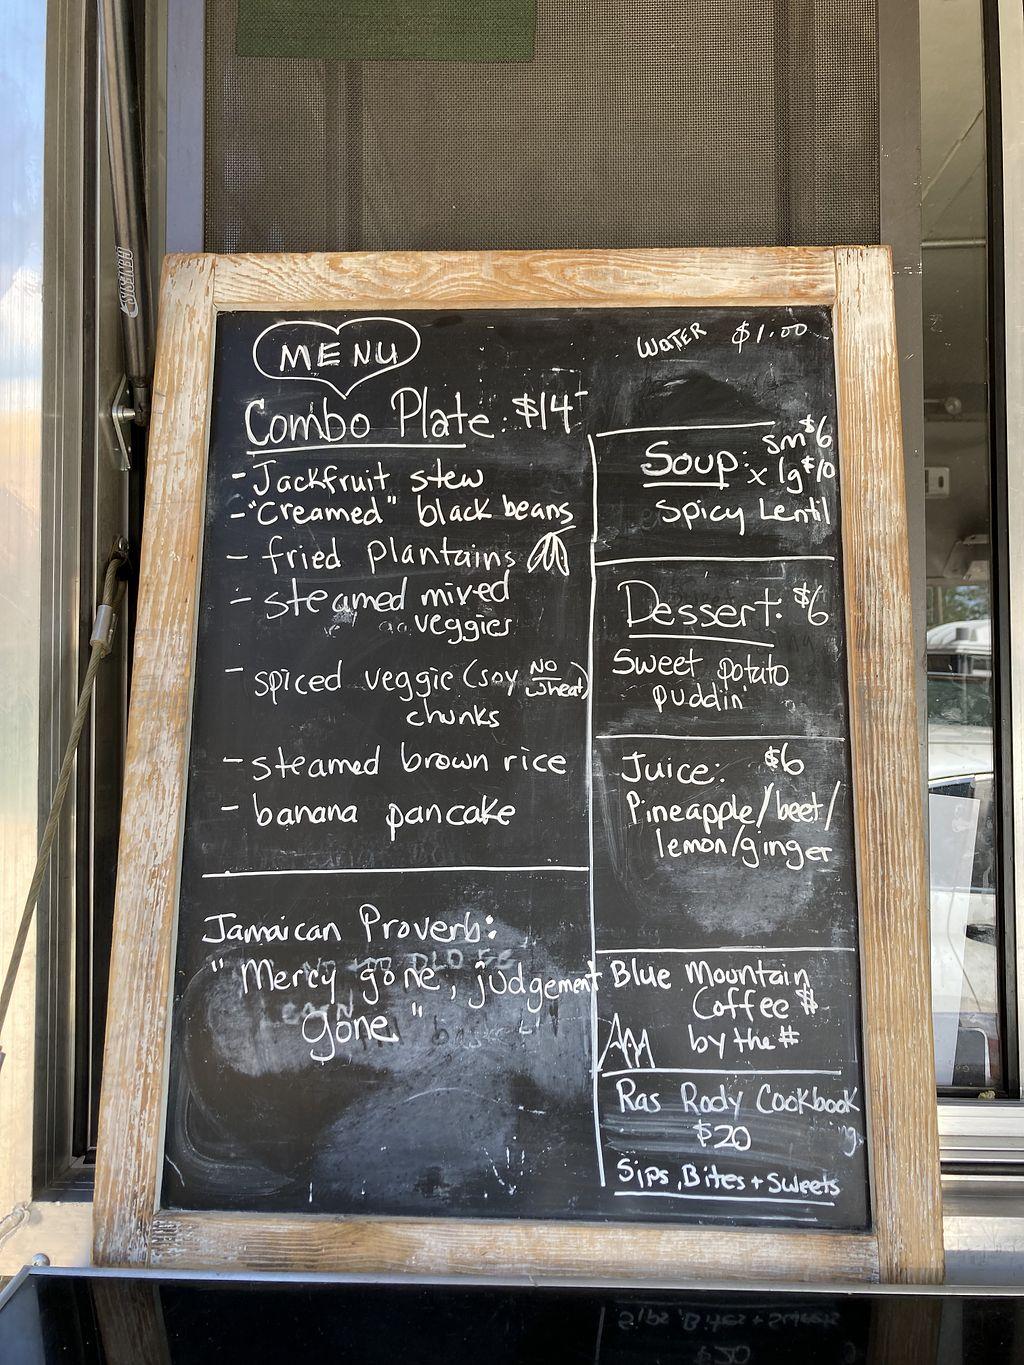 GENESIS
MENU
WATER $1.00
Combo Plate: $14-
- Jackfruit stew
- "Creamed" black beans
- fried plantains
- steamed mixed
veggies
- spiced veggie (soy NO wheat)
chunks
- steamed brown rice
- banana pancake
Jamaican Proverb:
"Mercy gone, judgement
gone"
Soup: sm $6
x lg $10
Spicy Lentil
Dessert: $6
Sweet potato
puddin'
Juice: $6
Pineapple/beet/
lemon/ginger
Blue Mountain
Coffee $
by the #
Ras Rody Cookbook
$20
Sips, Bites + Sweets